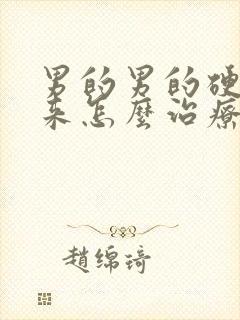 男的男的硬
来怎麼治療
趙绵琦